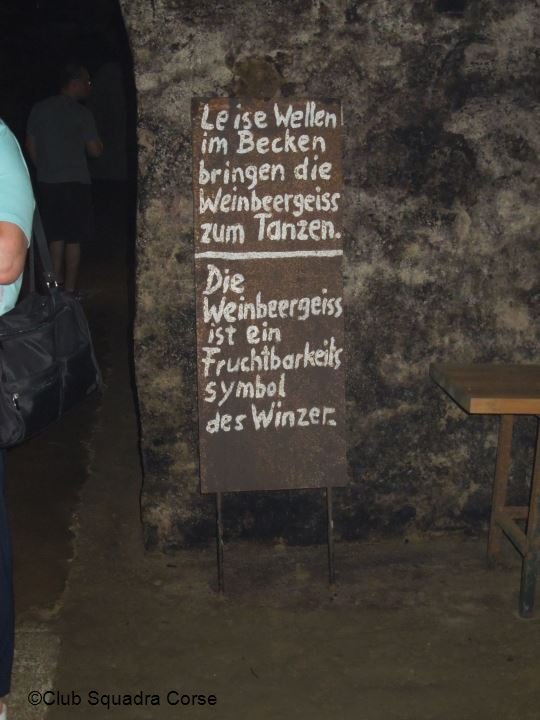 Leise Wellen
im Becken
bringen die
Weinbeergeiss
zum Tanzen.
Die
Weinbeergeiss
ist ein
Fruchtbarkeits
symbol
des Winzer.
©Club Squadra Corse